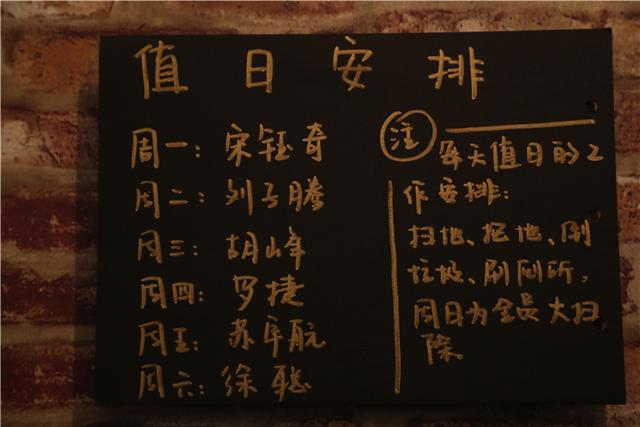 值日安排
周一：宋钰奇
周二：刘子腾
周三：胡山峰
周四：罗捷
周五：苏军航
周六：徐聪
注
每天值日的工
作安排：
扫地、拖地、倒
垃圾、刷厕所，
周日为全员大扫
除。